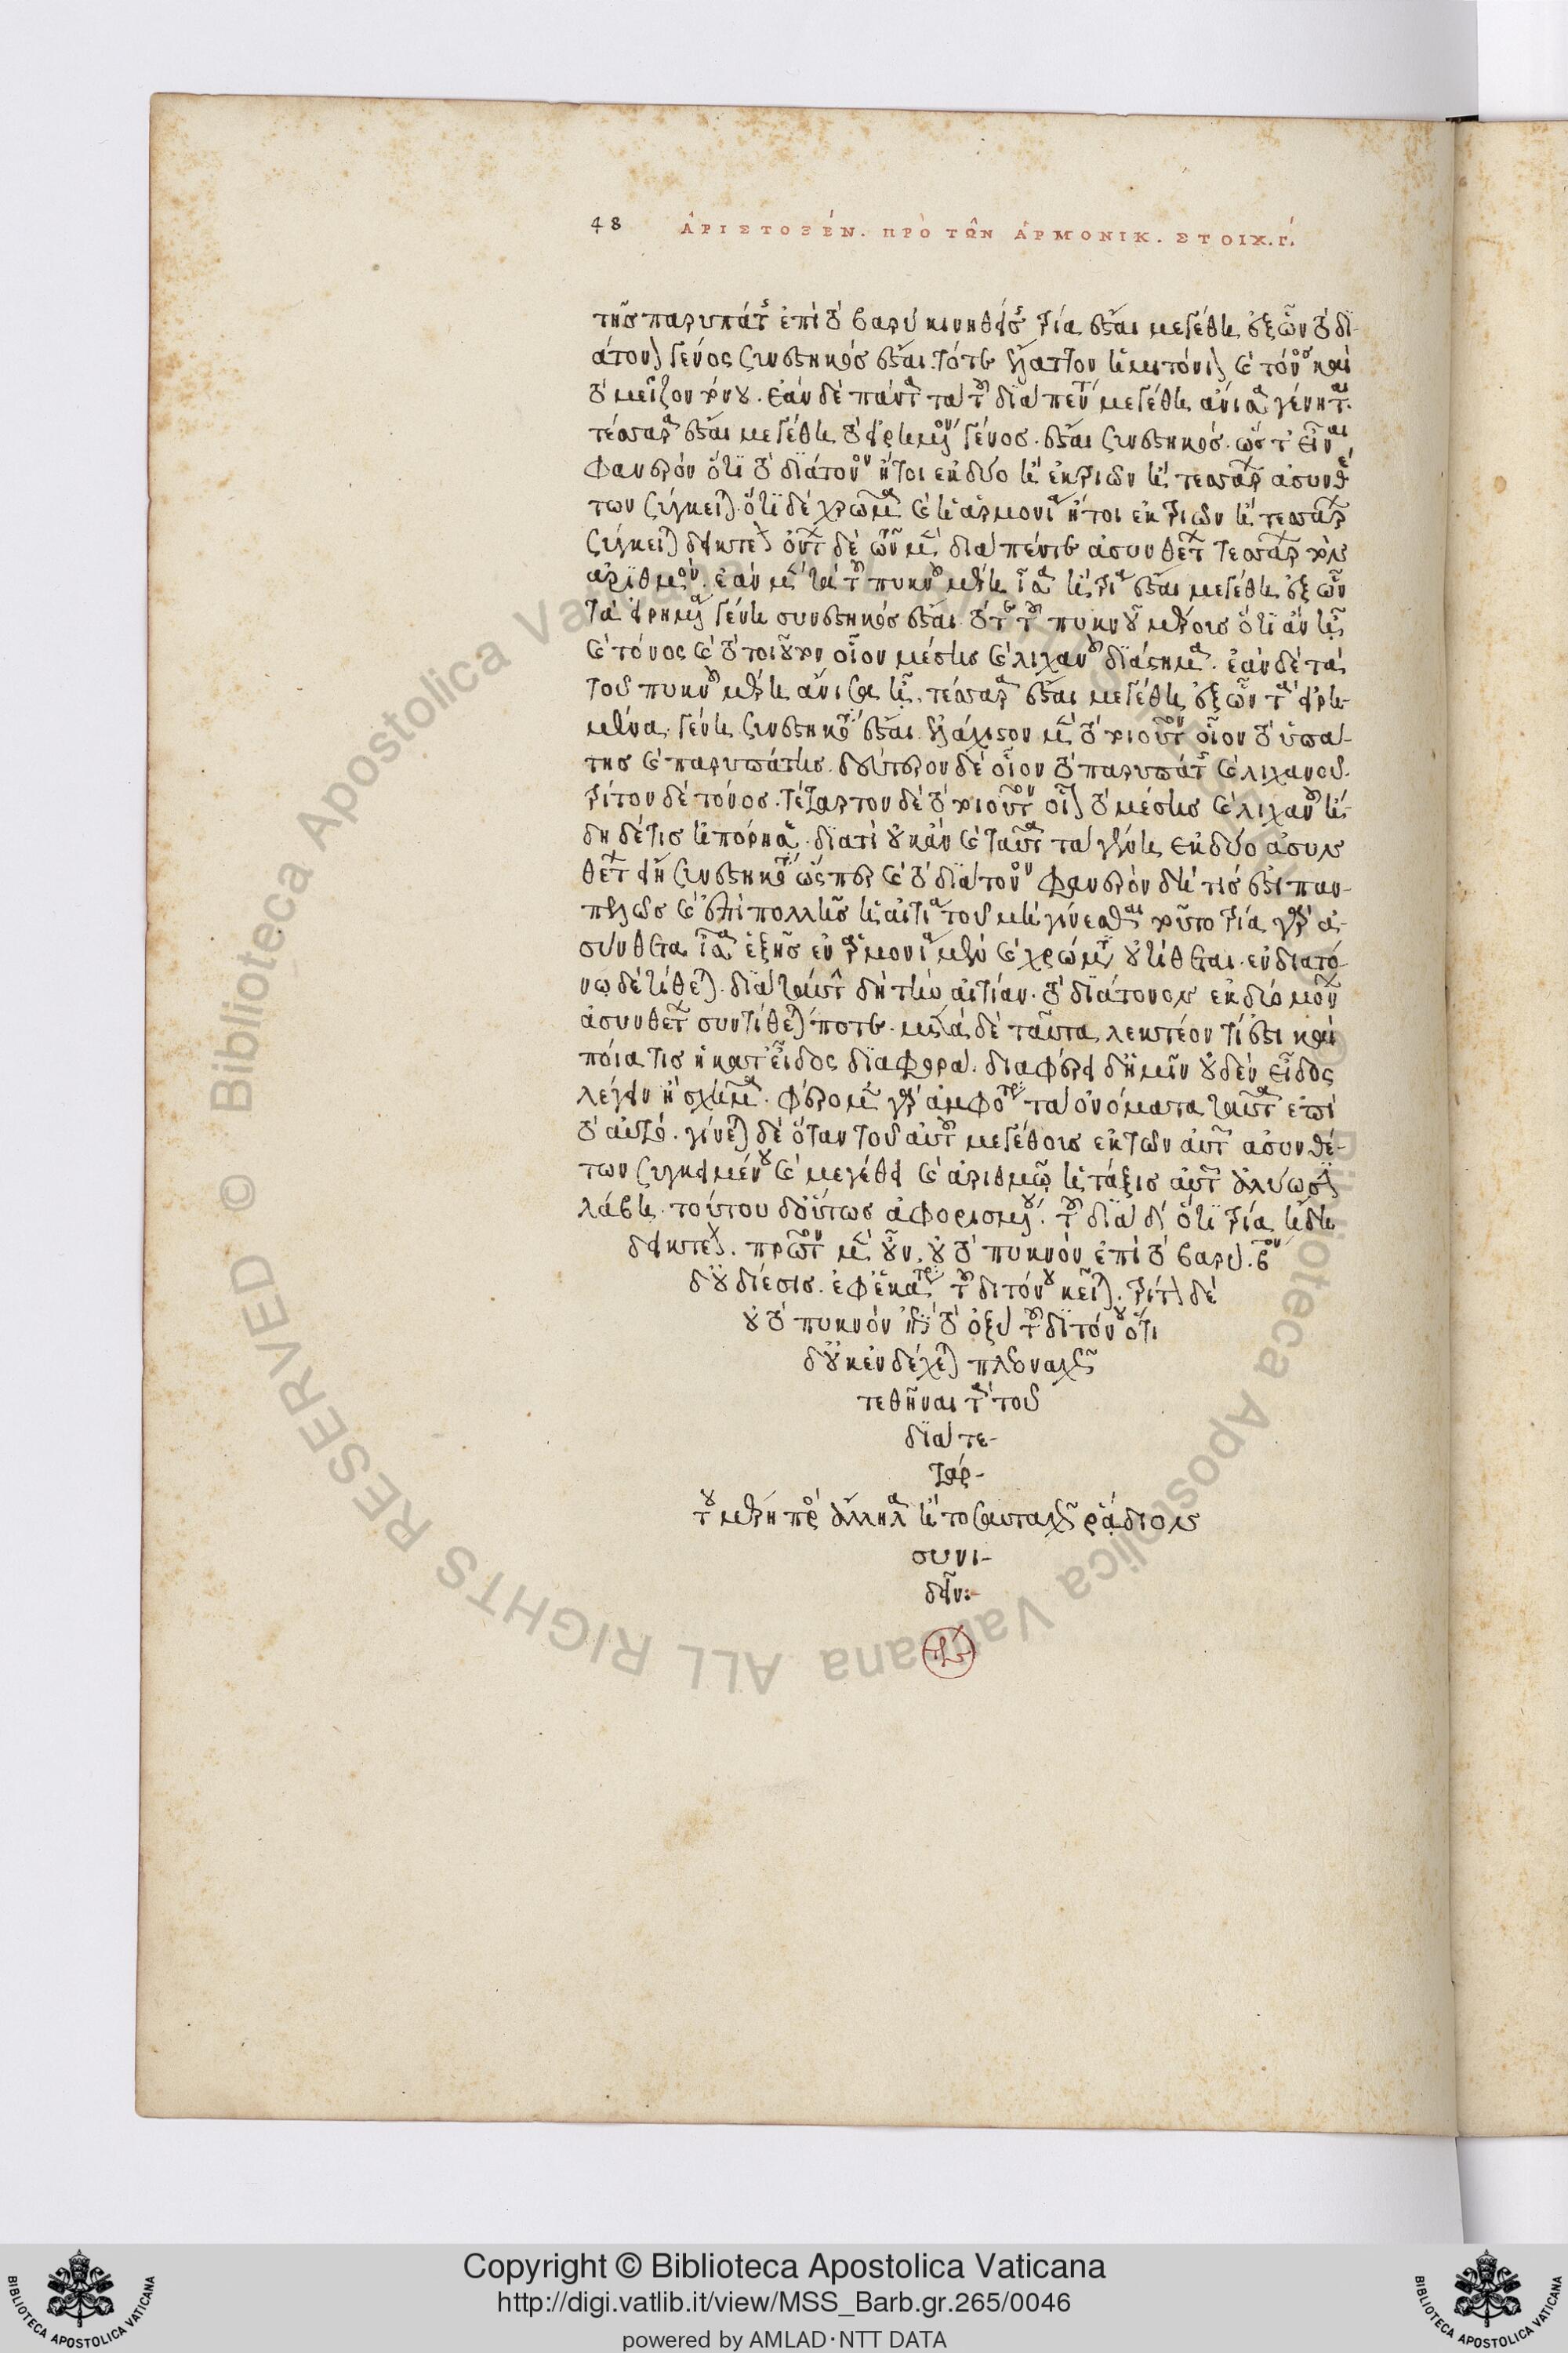 48 ἈΡΙΣΤΟΞΈΝ. ΠΡῸ ΤΩ͂Ν ἈΡΜΟΝΙΚ. ΣΤΟΙΧ. Γ´.
τῆς παρυπάτης ἐπὶ τὸ βαρὺ κινηθείσης τρία ἔσται μεγέθη ἐξ ὧν τὸ δι-
άτονον γένος συνεστηκὸς ἔσται. τό τε ἔλαττον ἡμιτόνιον καὶ τόνος καὶ
τὸ μεῖζον τόνου. ἐὰν δὲ πάντα τὰ τοῦ διὰ πέντε μεγέθη ἄνισα γένηται.
τέσσαρα ἔσται μεγέθη τὸ εἰρημένον γένος. ἔσται συνεστηκός. ὥστ' εἶναι
φανερὸν ὅτι τὸ διάτονον ἤτοι ἐκ δύο ἢ ἐκ τριῶν ἢ τεσσάρων ἀσυνθέ
των σύγκειται. ὅτι δὲ χρῶμα καὶ ἡ ἁρμονία ἤτοι ἐκ τριῶν ἢ τεσσάρων
σύγκειται δεικτέον ὄντων δὲ τῶν μὲν διὰ πέντε ἀσυνθέτων τεσσάρων τὸν
ἀριθμόν. ἐὰν μὲν τὰ τοῦ πυκνοῦ μέρη ἴσα ἢ τρία ἔσται μεγέθη ἐξ ὧν
τὰ εἰρημένα γένη συνεστηκὸς ἔσται τό τε τοῦ πυκνοῦ μέρος ὅτι ἂν ᾖ
καὶ τόνος καὶ τὸ τοιοῦτον οἷον μέσης καὶ λιχανοῦ διάστημα. ἐὰν δὲ τὰ
τοῦ πυκνοῦ μέρη ἄνισα ᾖ, τέσσαρα ἔσται μεγέθη ἐξ ὧν τὰ εἰρη-
μένα γένη συνεστηκότα ἔσται. ἐλάχιστον μὲν τὸ τοιοῦτον οἷον τὸ ὑπά-
της καὶ παρυπάτης. δεύτερον δὲ οἷον τὸ παρυπάτης καὶ λιχανοῦ.
τρίτον δὲ τόνος. τέταρτον δὲ τὸ τοιοῦτον οἷον τὸ μέσης καὶ λιχανοῦ ἤ-
δη δέ τις ἠπόρησε. διατί οὐκ ἂν καὶ ταῦτα τὰ γένη ἐκ δύο ἀσυν
θέτων εἴη συνεστηκότα ὥσπερ καὶ τὸ διάτονον φανερὸν δή τις ἐστι παν-
τελῶς καὶ ἐπιπολῆς ἡ αἰτία τοῦ μὴ γίνεσθαι τοῦτο τρία γὰρ ἀ-
σύνθετα ἴσα ἑξῆς ἐν ἁρμονίᾳ μὲν καὶ χρώματι οὐ τίθεται. ἐν διατό-
νῳ δὲ τίθεται. διὰ ταύτην δὴ τὴν αἰτίαν. τὸ διάτονον ἐκ δύο μόνων
ἀσυνθέτων συντίθεται ποτε. μετὰ δὲ ταῦτα λεκτέον τί ἐστι καὶ
ποία τις ἡ κατ' εἶδος διαφορά. διαφέρει δ' ἡμῖν οὐδὲν εἶδος
λέγειν ἢ σχῆμα. φέρομεν γὰρ ἀμφότερα τὰ ὀνόματα ταῦτα ἐπὶ
τὸ αὐτό. γίνεται δὲ ὅταν τοῦ αὐτοῦ μεγέθους ἐκ τῶν αὐτῶν ἀσυνθέ-
των συγκειμένου καὶ μεγέθει καὶ ἀριθμῷ ἡ τάξις αὐτῶν ἀλλοίωσιν
λάβῃ. τούτου δ' οὕτως ἀφορισμένου. τοῦ διὰ δ´ ὅτι τρία εἴδη
δεικτέον. πρῶτον μὲν οὖν. οὗ τὸ πυκνὸν ἐπὶ τὸ βαρύ. βον
δ' οὗ δίεσις. ἐφ' ἑκάτερα τοῦ διτόνου κεῖται. τρίτον δὲ
οὗ τὸ πυκνὸν ἐπὶ τὸ ὀξὺ τοῦ διτόνου ὅτι
δ' οὐκ ἐνδέχεται πλεοναχῶς
τεθῆναι τὰ τοῦ
διὰ τε-
σσάρ-
ου μέρη πρὸς ἄλληλα ἢ τοσαυταχῶς ῥάδιον
συνι-
δεῖν:-